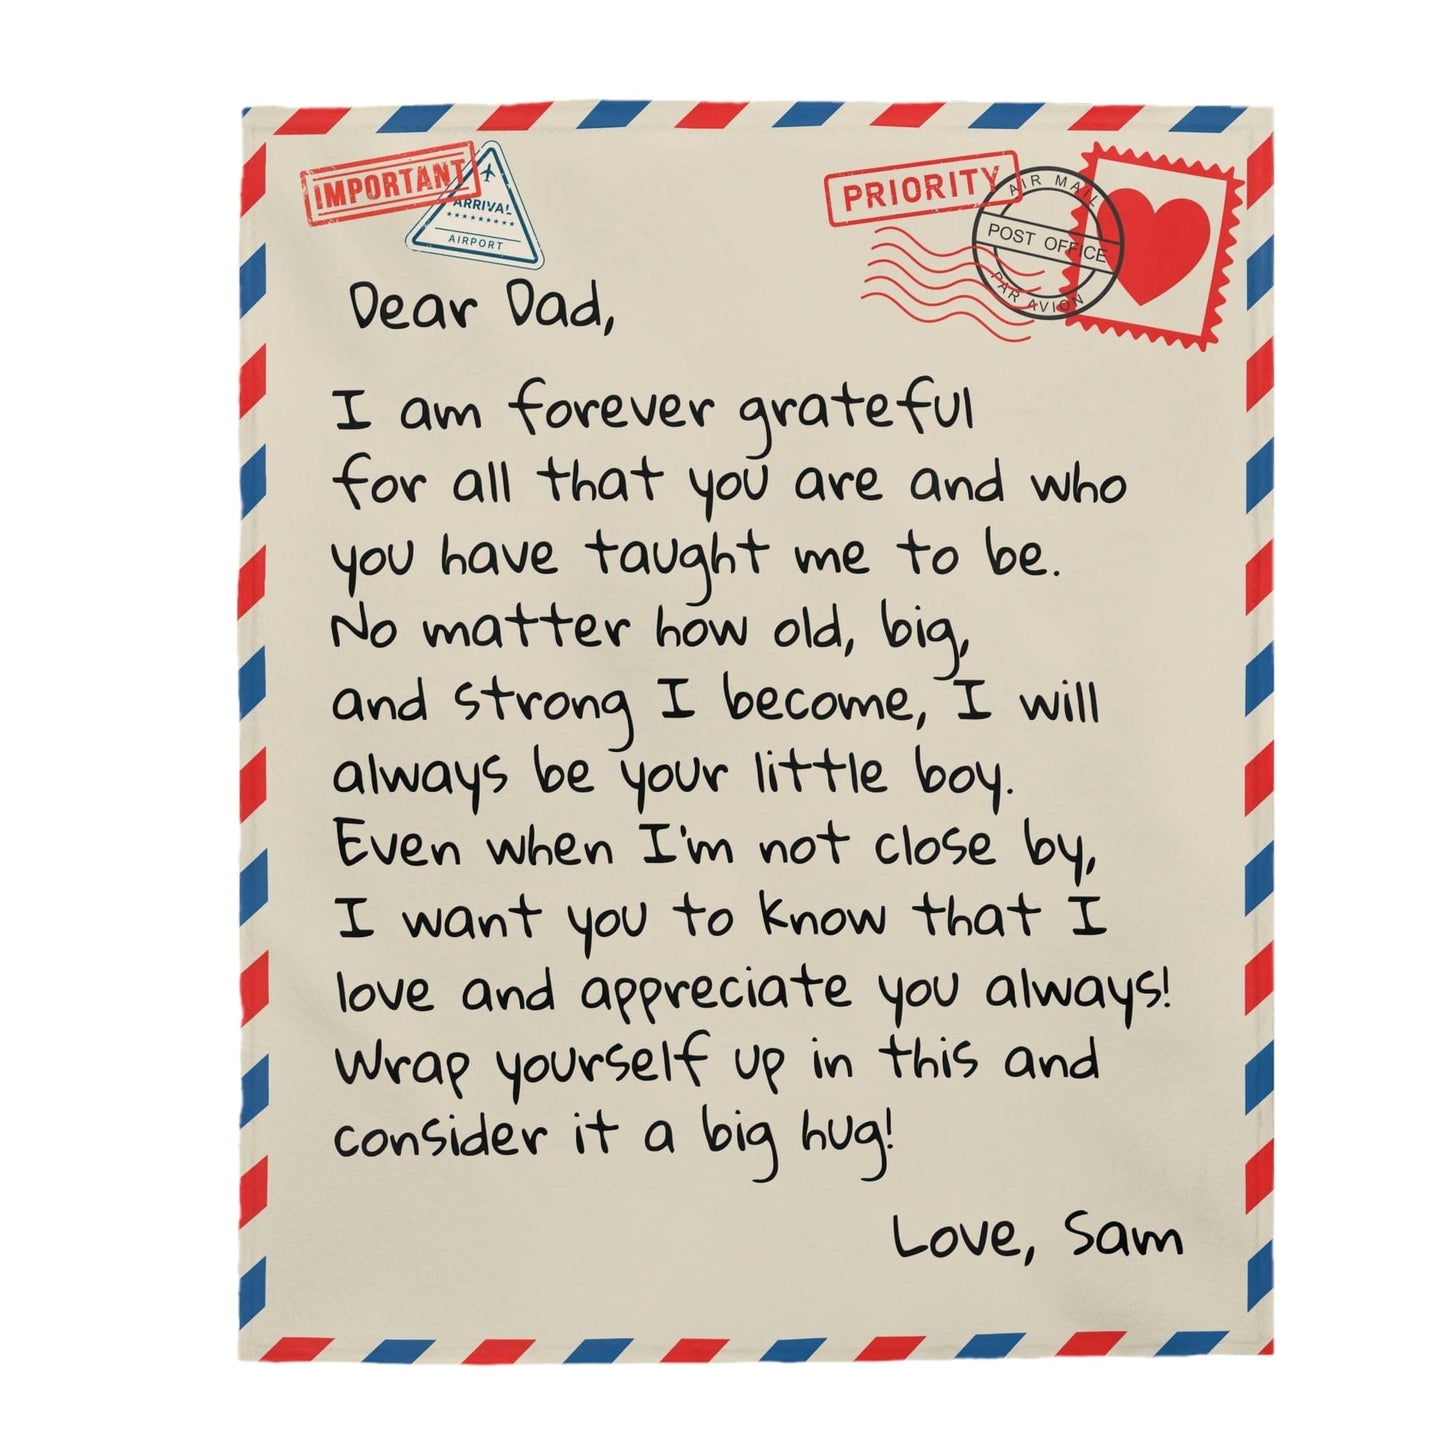 IMPORTANT
ARRIVAL
AIRPORT
PRIORITY
AIR MAIL
POST OFFICE
PAR AVION
Dear Dad,
I am forever grateful
for all that you are and who
you have taught me to be.
No matter how old, big,
and strong I become, I will
always be your little boy.
Even when I'm not close by,
I want you to know that I
love and appreciate you always!
Wrap yourself up in this and
consider it a big hug!
Love, Sam